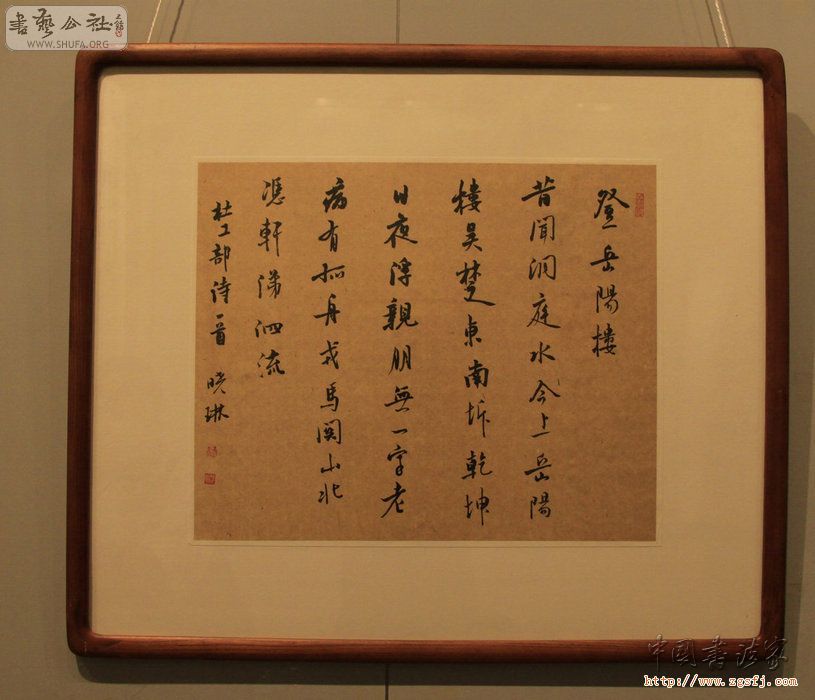 書藝公社
WWW.SHUFA.ORG
登岳陽樓
昔聞洞庭水今上岳陽
樓吳楚東南坼乾坤
日夜浮親朋無一字老
病有孤舟戎馬関山北
憑軒涕泗流
杜工部詩一首 曉琳
中国书法家
http://www.zgsfj.com